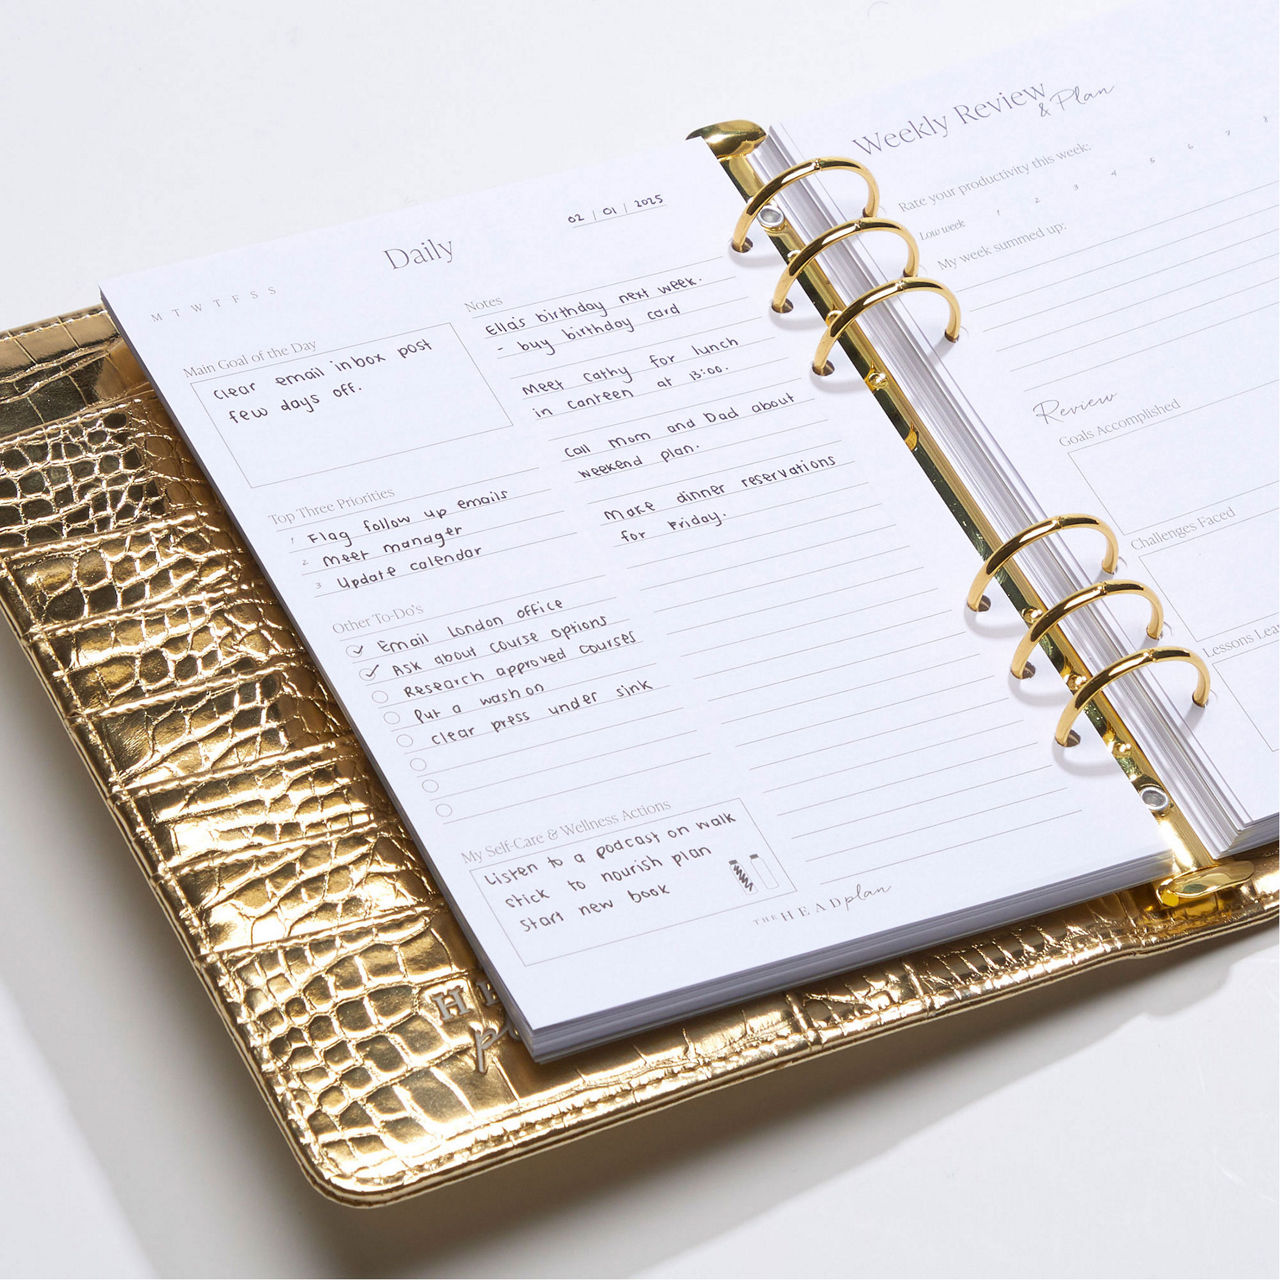 02 / 01 / 2025
Daily
M T W T F S S
Main Goal of the Day
Clear email inbox post
few days off.
Top Three Priorities
1 Flag follow up emails
2 Meet manager
3 Update calendar
Other To-Do's
Email London office
Ask about course options
Research approved courses
Put a wash on
Clear press under sink
My Self-Care & Wellness Actions
Listen to a podcast on walk
Stick to nourish plan
Start new book
Notes
Ella's birthday next week.
- buy birthday card
Meet Cathy for lunch
in canteen at 13:00.
Call Mom and Dad about
weekend plan.
Make dinner reservations
for Friday.
THE HEAD plan
Weekly Review
& Plan
Rate your productivity this week:
Low week 1 2 3 4 5 6 7 8
My week summed up:
Review
Goals Accomplished
Challenges Faced
Lessons